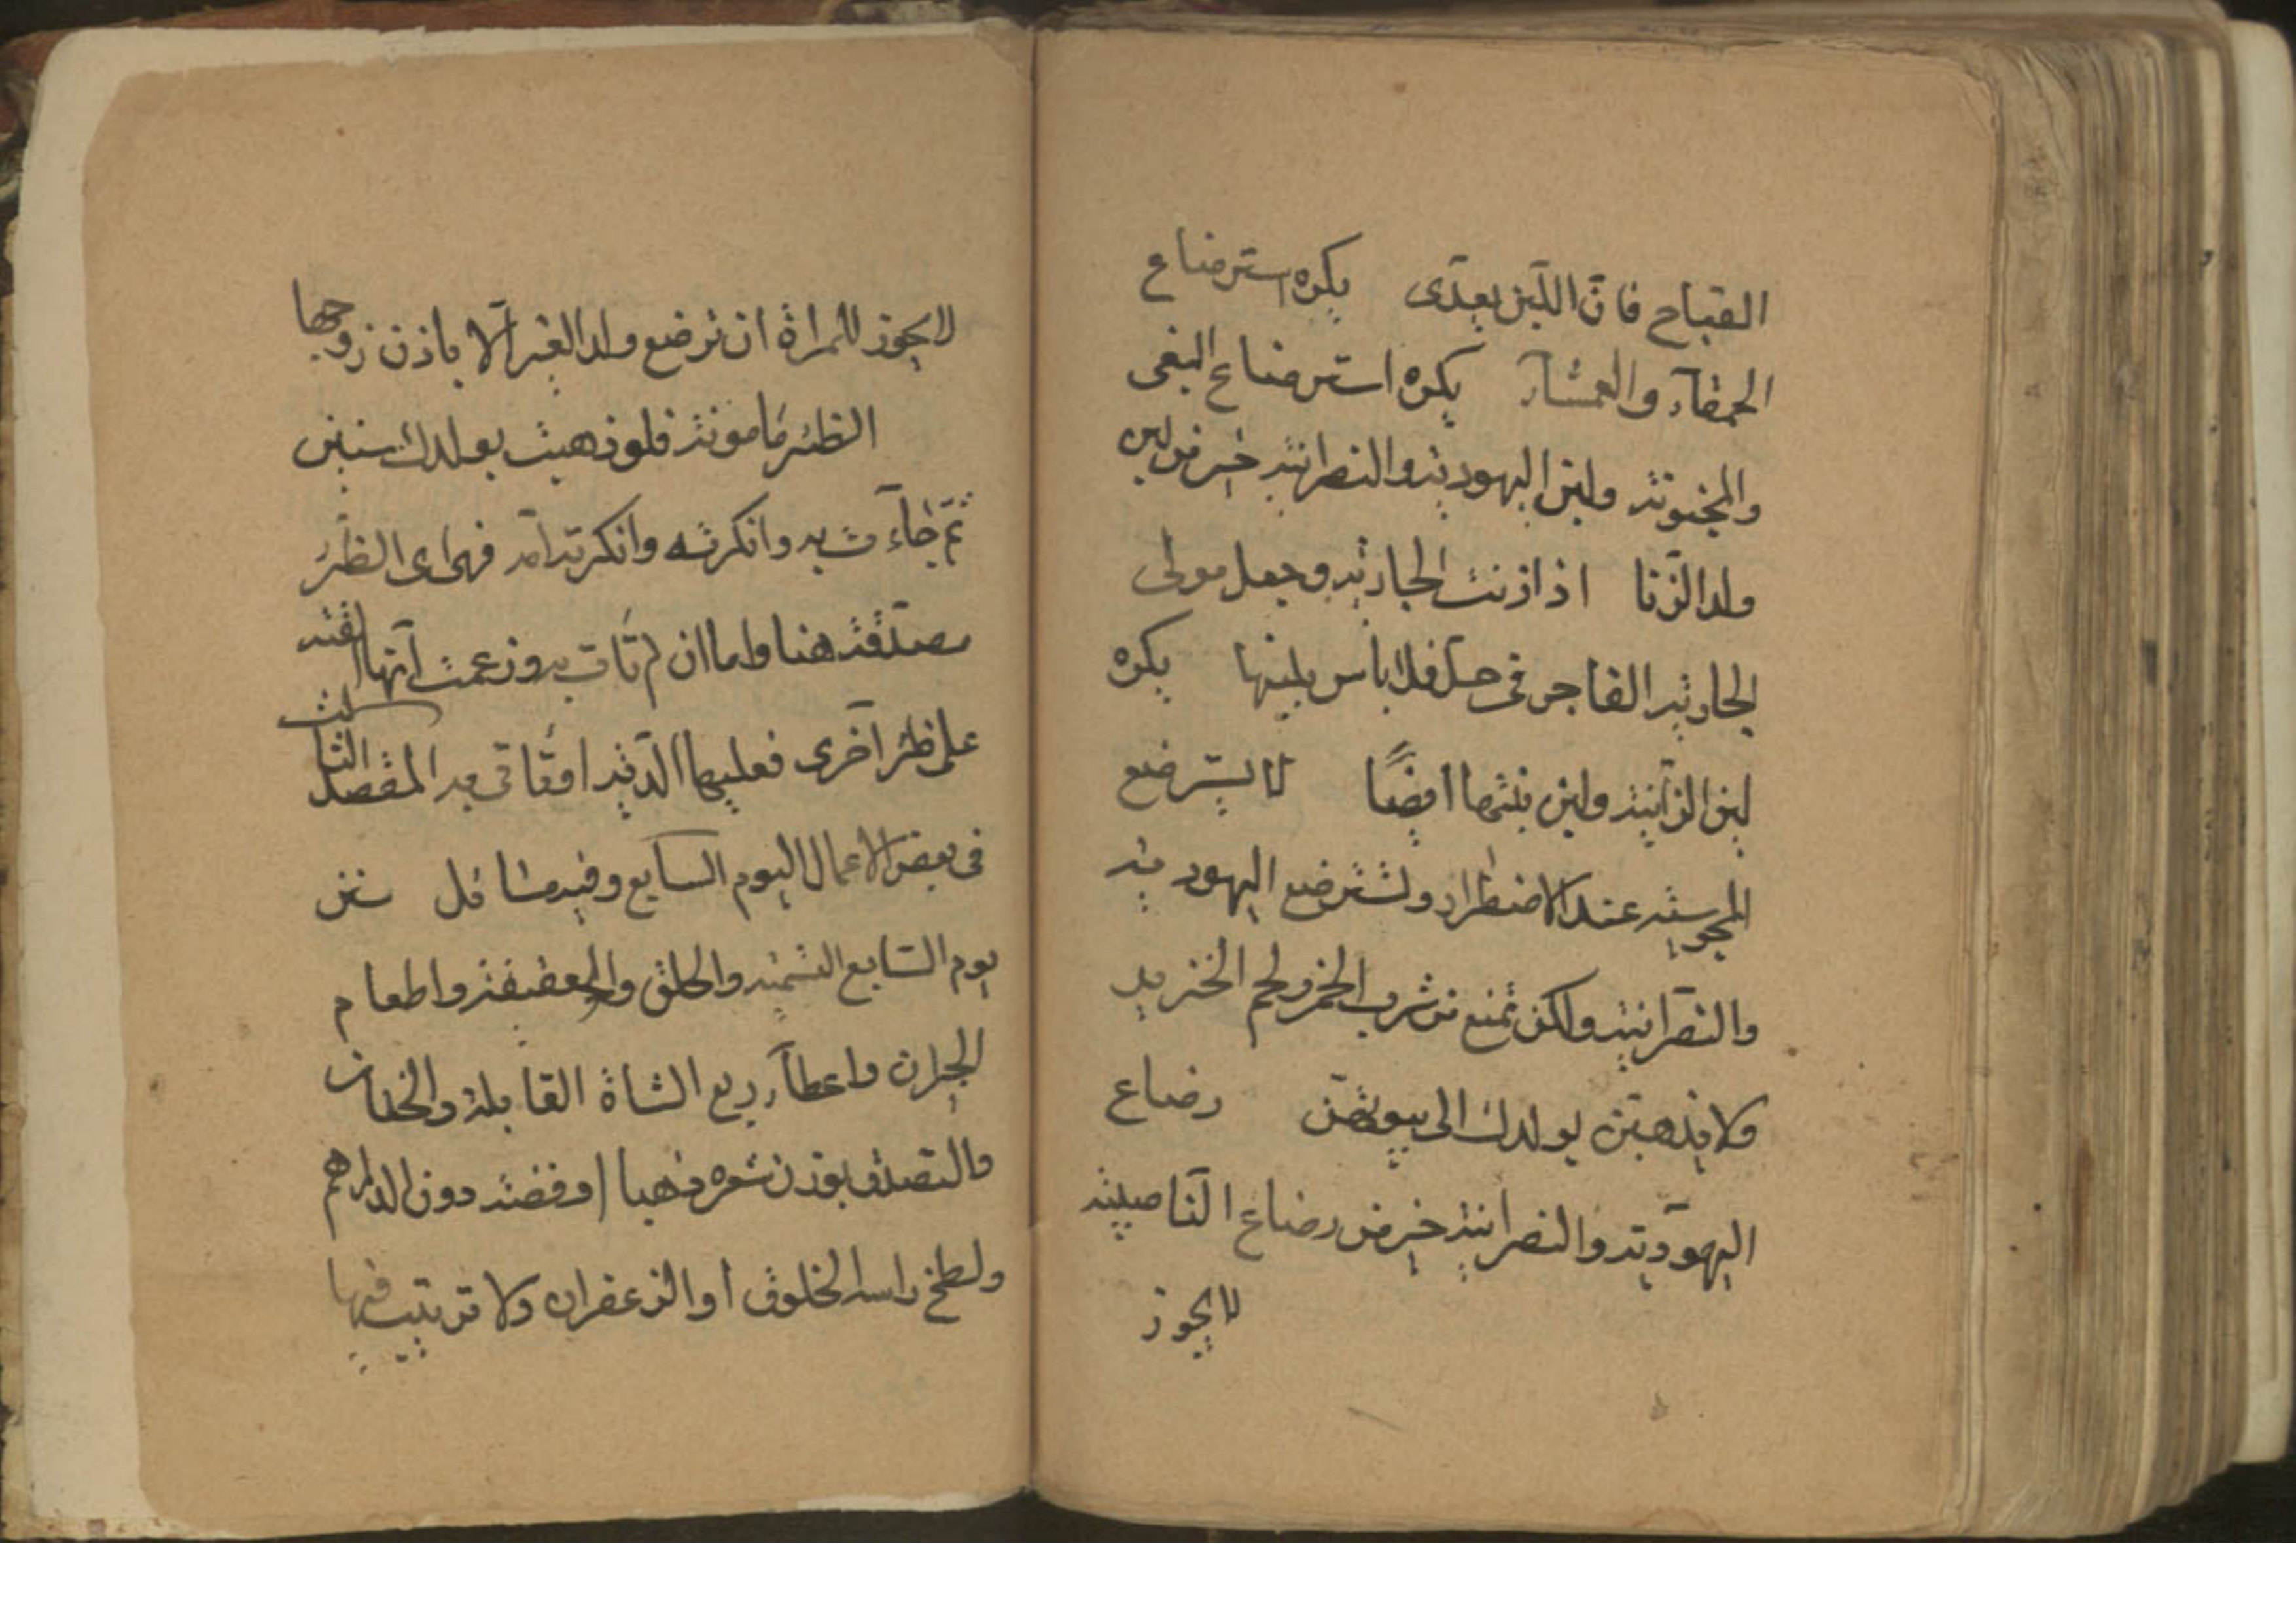 القباح فان اللبن يعدى يكره استرضاع
الحمقآء والعمشآء يكره استرضاع البغى
والمجنونة ولبن اليهودية والنصرانية خير من لبن
ولد الزنا اذا اذنت الجارية وجعل مولى
الجارية الفاجر فى حل فلا باس بلبنها يكره
لبن الزانية ولبن بنتها ايضًا لا يسترضع
المجوسية عند الاضطرار وتسترضع اليهودية
والنصرانية ولكن تمنع من شرب الخمر ولحم الخنزير
ولا يذهبن بولدك الى بيوتهن رضاع
اليهودية والنصرانية خير من رضاع الناصبية
لا يجوز
لا يجوز للمراة ان ترضع ولد الغير الا باذن زوجها
الظئر مامونة فلو ذهبت بولدك سنين
ثم جآءت به وانكرته وانكرته امه فهى اى الظئر
مصدقة هنا واما ان لم تات به وزعمت انها القته
على ظئر اخرى فعليها الدية المفصل الثالث
فى بعض الاعمال اليوم السابع وفيه مسائل سنن
يوم السابع التسمية والحلق والعقيقة واطعام
الجيران واعطآء ربع الشاة القابلة والختان
والتصدق بوزن شعره ذهبا او فضة دون الدراهم
ولطخ راسه الخلوق او الزعفران ولا ترتيب فيها